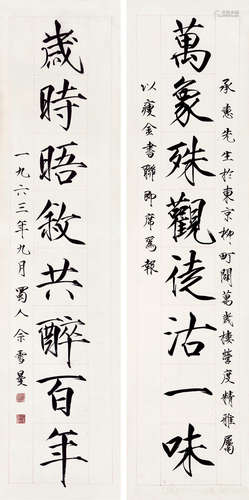 萬象殊觀徒沽一味
承惠先生於東京柳町闢萬式樓營度精雅屬
以瘦金書聯即席寫報
歲時晤敘共醉百年
一九六三年九月蜀人余雪曼